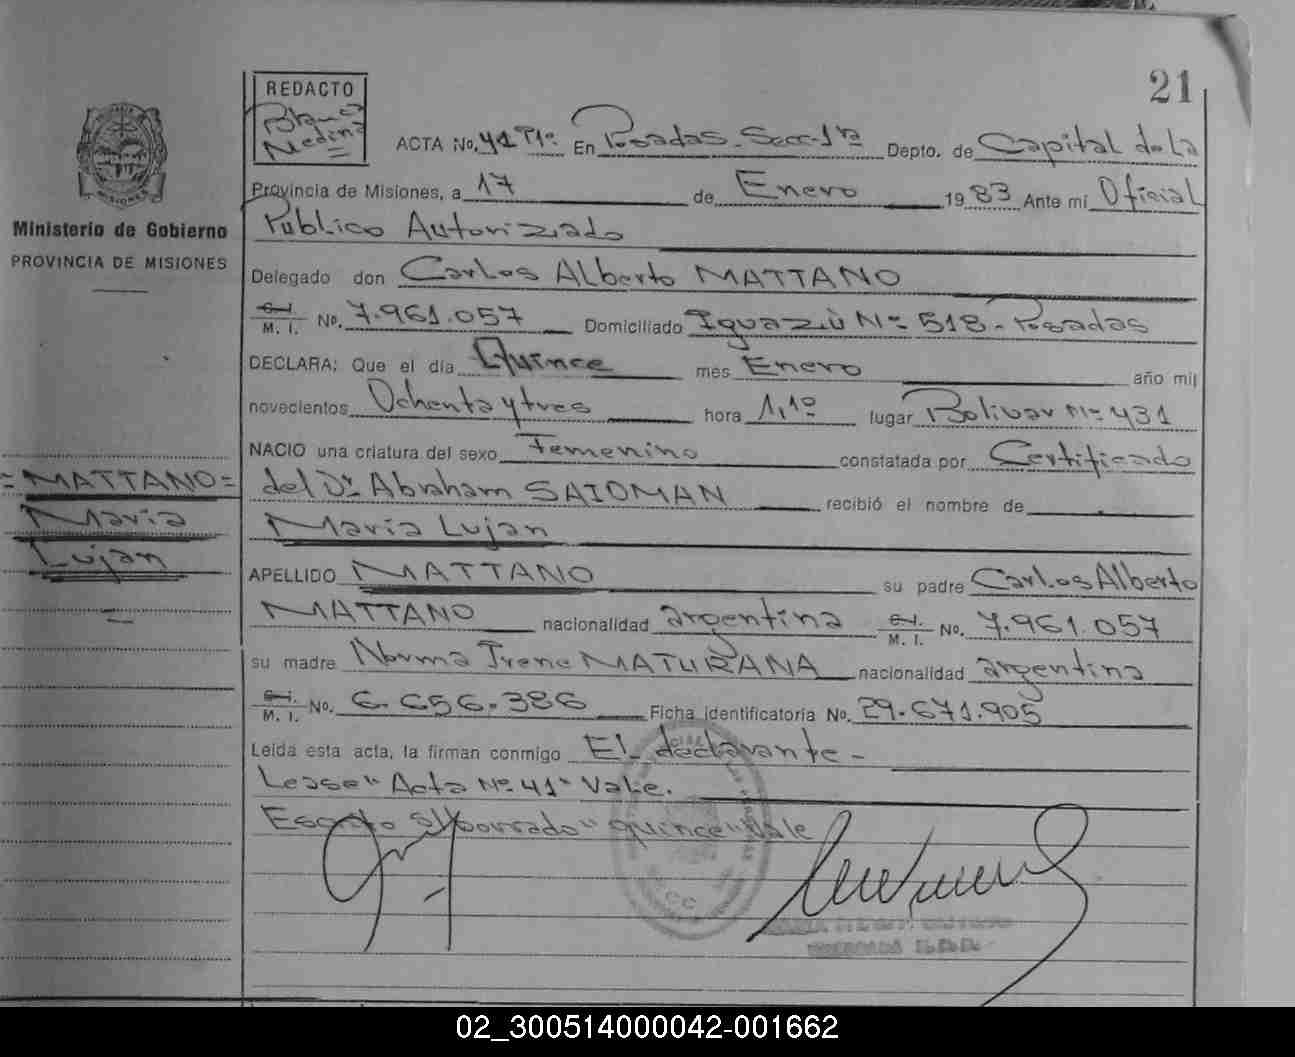 21
REDACTO
Blanca
Medina
MISIONES
Ministerio de Gobierno
PROVINCIA DE MISIONES
ACTA No. 41 Tº En Posadas - Secc-1ra Depto. de Capital de La
Provincia de Misiones, a 17 de Enero 1983 Ante mí Oficial
Publico Autorizado
Delegado don Carlos Alberto MATTANO
C.I. M. I. No. 7.961.057 Domiciliado Iguazú Nº 518 - Posadas
DECLARA: Que el día Quince mes Enero año mil
novecientos Ochenta y tres hora 1,10 lugar Bolivar Nº 431
NACIO una criatura del sexo Femenino constatada por Certificado
del Dr Abraham SAIDMAN recibió el nombre de
María Lujan
APELLIDO MATTANO su padre Carlos Alberto
MATTANO nacionalidad argentina C.I. M. I. No. 7.961.057
su madre Norma Irene MATURANA nacionalidad argentina
C.I. M. I. No. 6.656.386 Ficha identificatoria No. 29.671.905
Leída esta acta, la firman conmigo El declarante -
Lease "Acta Nº 41" Vale.
Escrito s/borrado "quince" Vale
= MATTANO =
María
Lujan
=
02_300514000042-001662